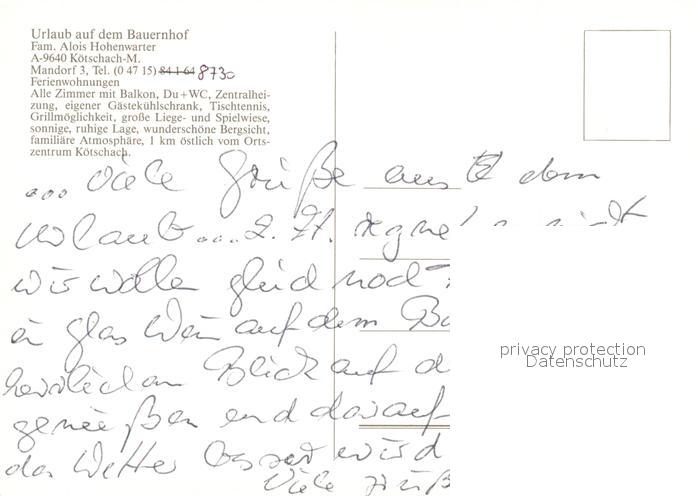 Urlaub auf dem Bauernhof
Fam. Alois Hohenwarter
A-9640 Kötschach-M.
Mandorf 3, Tel. (0 47 15) 84 1 64 8730
Ferienwohnungen
Alle Zimmer mit Balkon, Du+WC, Zentralhei-
zung, eigener Gästekühlschrank, Tischtennis,
Grillmöglichkeit, große Liege- und Spielwiese,
sonnige, ruhige Lage, wunderschöne Bergsicht,
familiäre Atmosphäre, 1 km östlich vom Orts-
zentrum Kötschach.
... viele Grüße aus dem
Urlaub ... z. Zt. regne
wir wollen gleich noch
ein Glas Wein auf dem Ba
herrlichen Blick auf d
genießen und darauf
das Wetter besser wird
Viele Grüß
privacy protection
Datenschutz